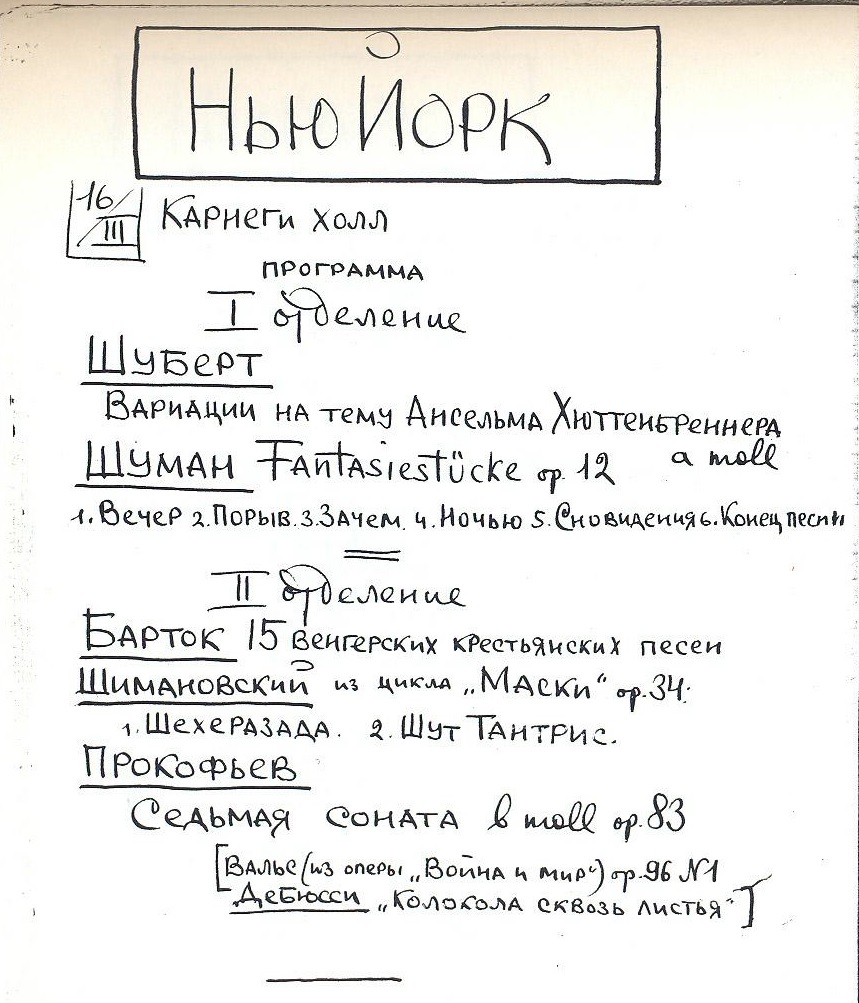 Нью Йорк
16/III Карнеги холл
программа
I отделение
Шуберт
Вариации на тему Ансельма Хюттенбреннера
a moll
Шуман Fantasiestücke op. 12
1. Вечер 2. Порыв. 3. Зачем. 4. Ночью 5. Сновидения 6. Конец песни
II отделение
Барток 15 венгерских крестьянских песен
Шимановский из цикла „Маски“ op. 34:
1. Шехеразада. 2. Шут Тантрис.
Прокофьев
Седьмая соната b moll op. 83
[Вальс (из оперы „Война и мир“) op. 96 N1
Дебюсси „Колокола сквозь листья“]